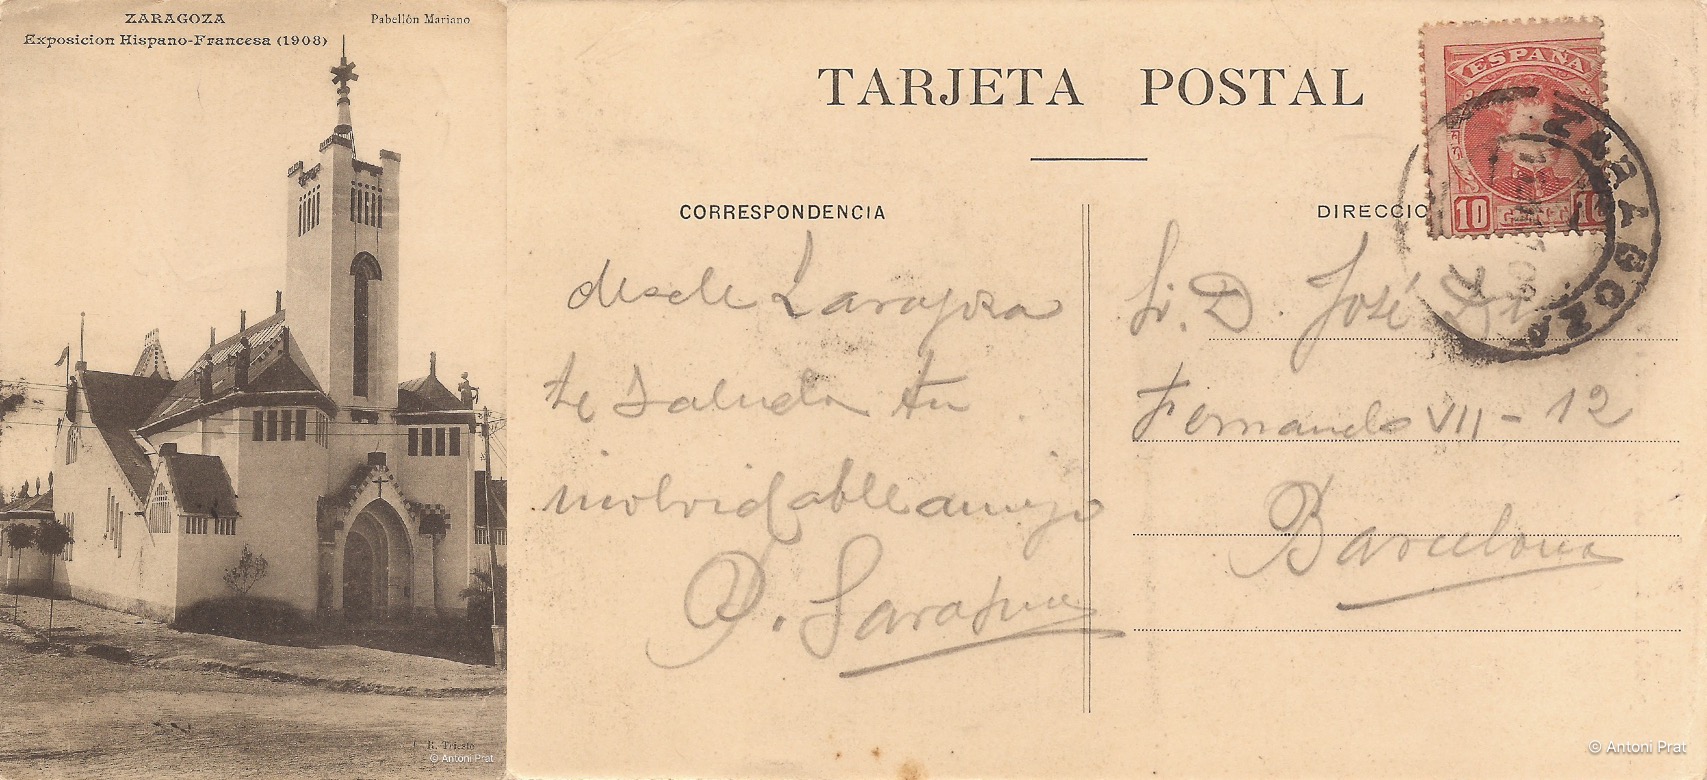 ZARAGOZA
Exposicion Hispano-Francesa (1908)
Pabellón Mariano
R. Triesto
© Antoni Prat
TARJETA POSTAL
CORRESPONDENCIA
desde Zaragoza
te saluda tu
inolvidable amigo
DIRECCIO
Sr. D. José
Fernando VII - 12
Barcelona
ESPAÑA
10 CENT. 10
ZARAGOZA
© Antoni Prat